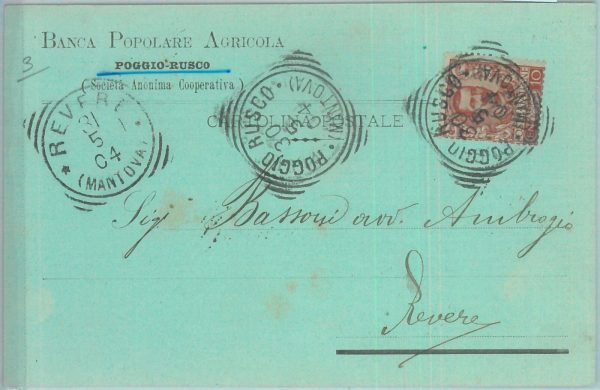 3
BANCA POPOLARE AGRICOLA
POGGIO-RUSCO
(Società Anonima Cooperativa)
CARTOLINA POSTALE
REVERE
31
5
04
(MANTOVA)
POGGIO RUSCO
30
5
04
(MANTOVA)
POGGIO RUSCO
30
5
04
(MANTOVA)
Sig Bassoni avv. Ambrogio
Revere